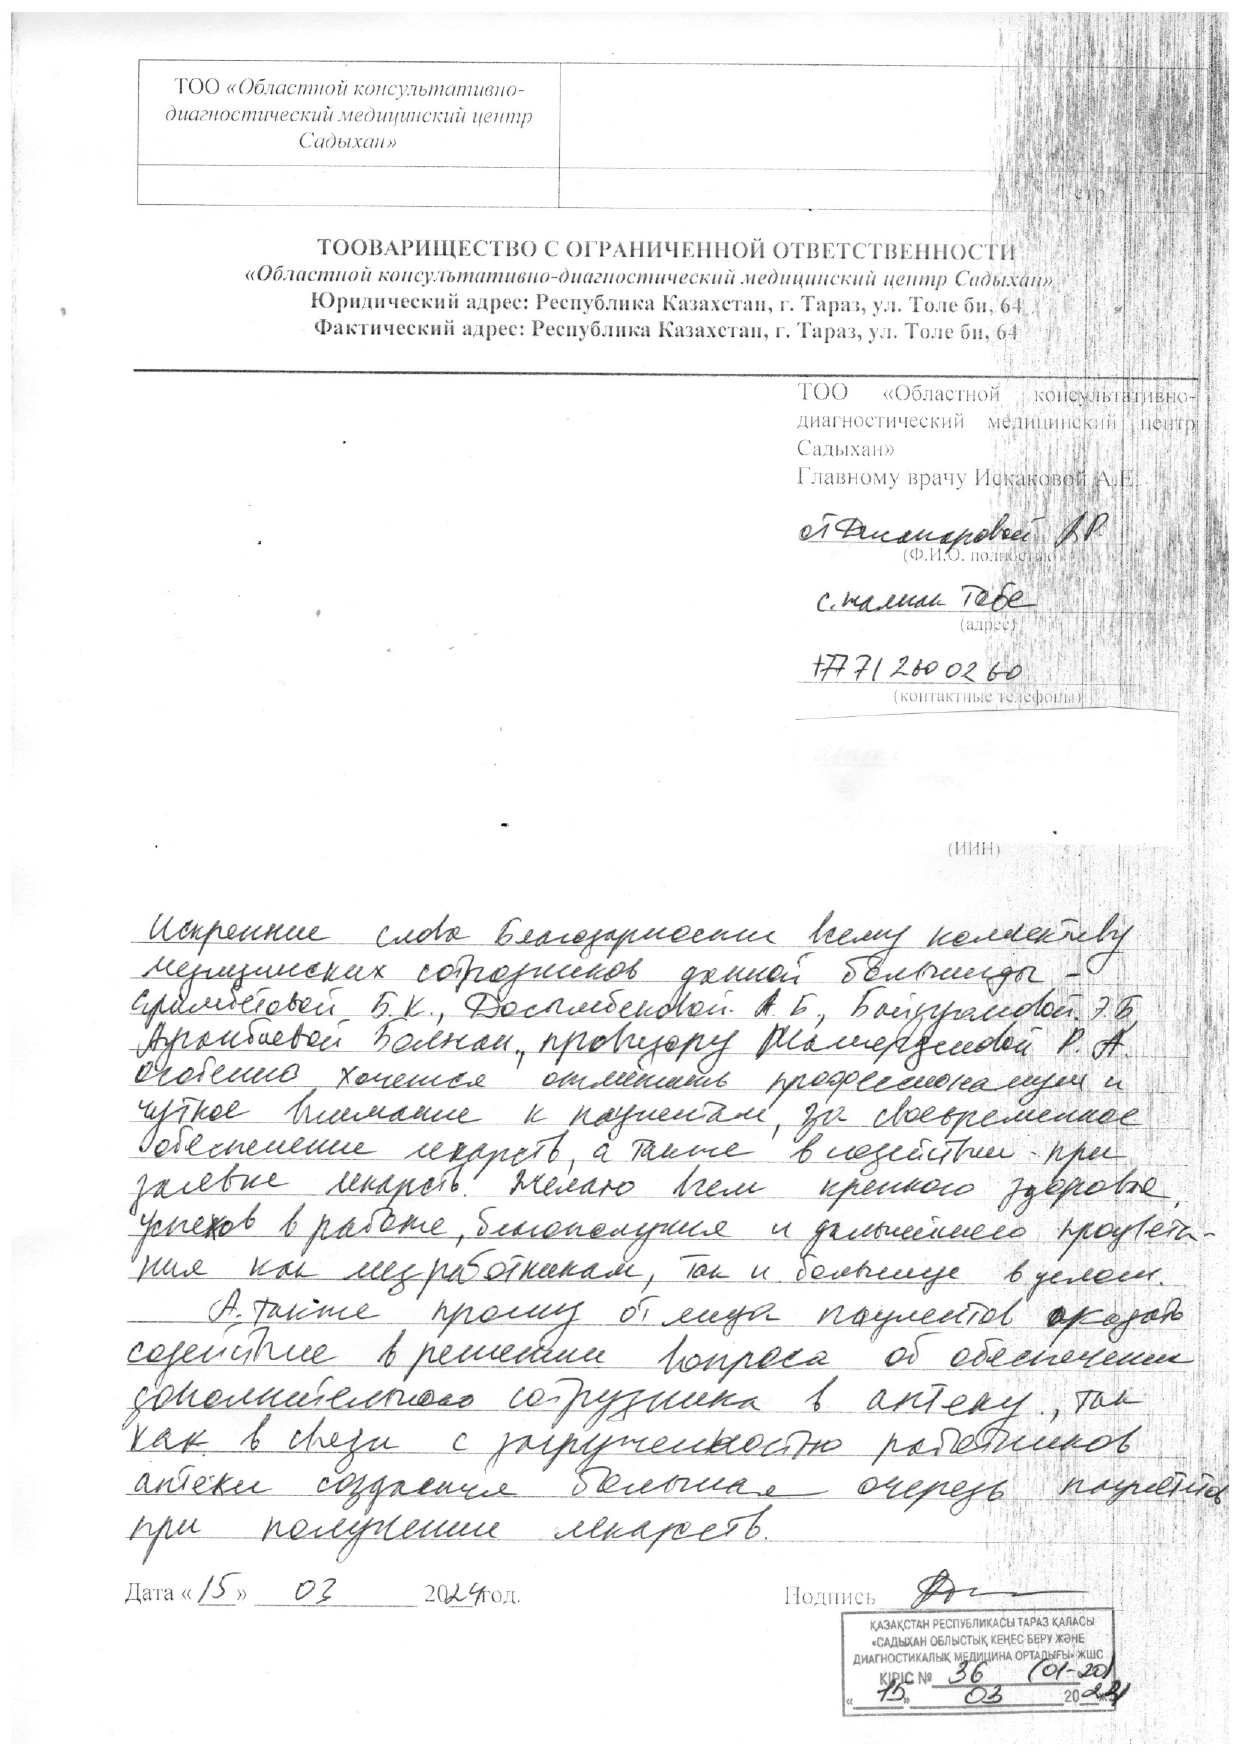 ТОО «Областной консультативно-
диагностический медицинский центр
Садыхан»
стр
ТООВАРИЩЕСТВО С ОГРАНИЧЕННОЙ ОТВЕТСТВЕННОСТИ
«Областной консультативно-диагностический медицинский центр Садыхан»
Юридический адрес: Республика Казахстан, г. Тараз, ул. Толе би, 64
Фактический адрес: Республика Казахстан, г. Тараз, ул. Толе би, 64
ТОО «Областной консультативно-
диагностический медицинский центр
Садыхан»
Главному врачу Искаковой А.Е.
от
(Ф.И.О. полностью)
с. Жалпак Тобе
(адрес)
+7771 260 02 60
(контактные телефоны)
(ИИН)
Искренние слова благодарности всему коллективу
медицинских сотрудников данной больницы -
Б.К., Досымбековой А.Б., Э.Б.
провизору Р.А.
особенно хочется отметить профессионализм и
чуткое внимание к пациентам, за своевременное
обеспечение лекарств, а также в содействии при
лекарств. Желаю всем крепкого здоровья,
успехов в работе, благополучия и дальнейшего процвета-
ния как медработникам, так и больнице в целом.
А также прошу от лица пациентов оказать
содействие в решении вопроса об обеспечении
дополнительного сотрудника в аптеку, так
как в связи с загруженностью работников
аптеки создается большая очередь пациентов
при получении лекарств.
Дата «15» 03 2024год. Подпись
ҚАЗАҚСТАН РЕСПУБЛИКАСЫ ТАРАЗ ҚАЛАСЫ
«САДЫХАН ОБЛЫСТЫҚ КЕҢЕС БЕРУ ЖӘНЕ
ДИАГНОСТИКАЛЫҚ МЕДИЦИНА ОРТАЛЫҒЫ» ЖШС
КІРІС № 36 (01-20)
«15» 03 2024